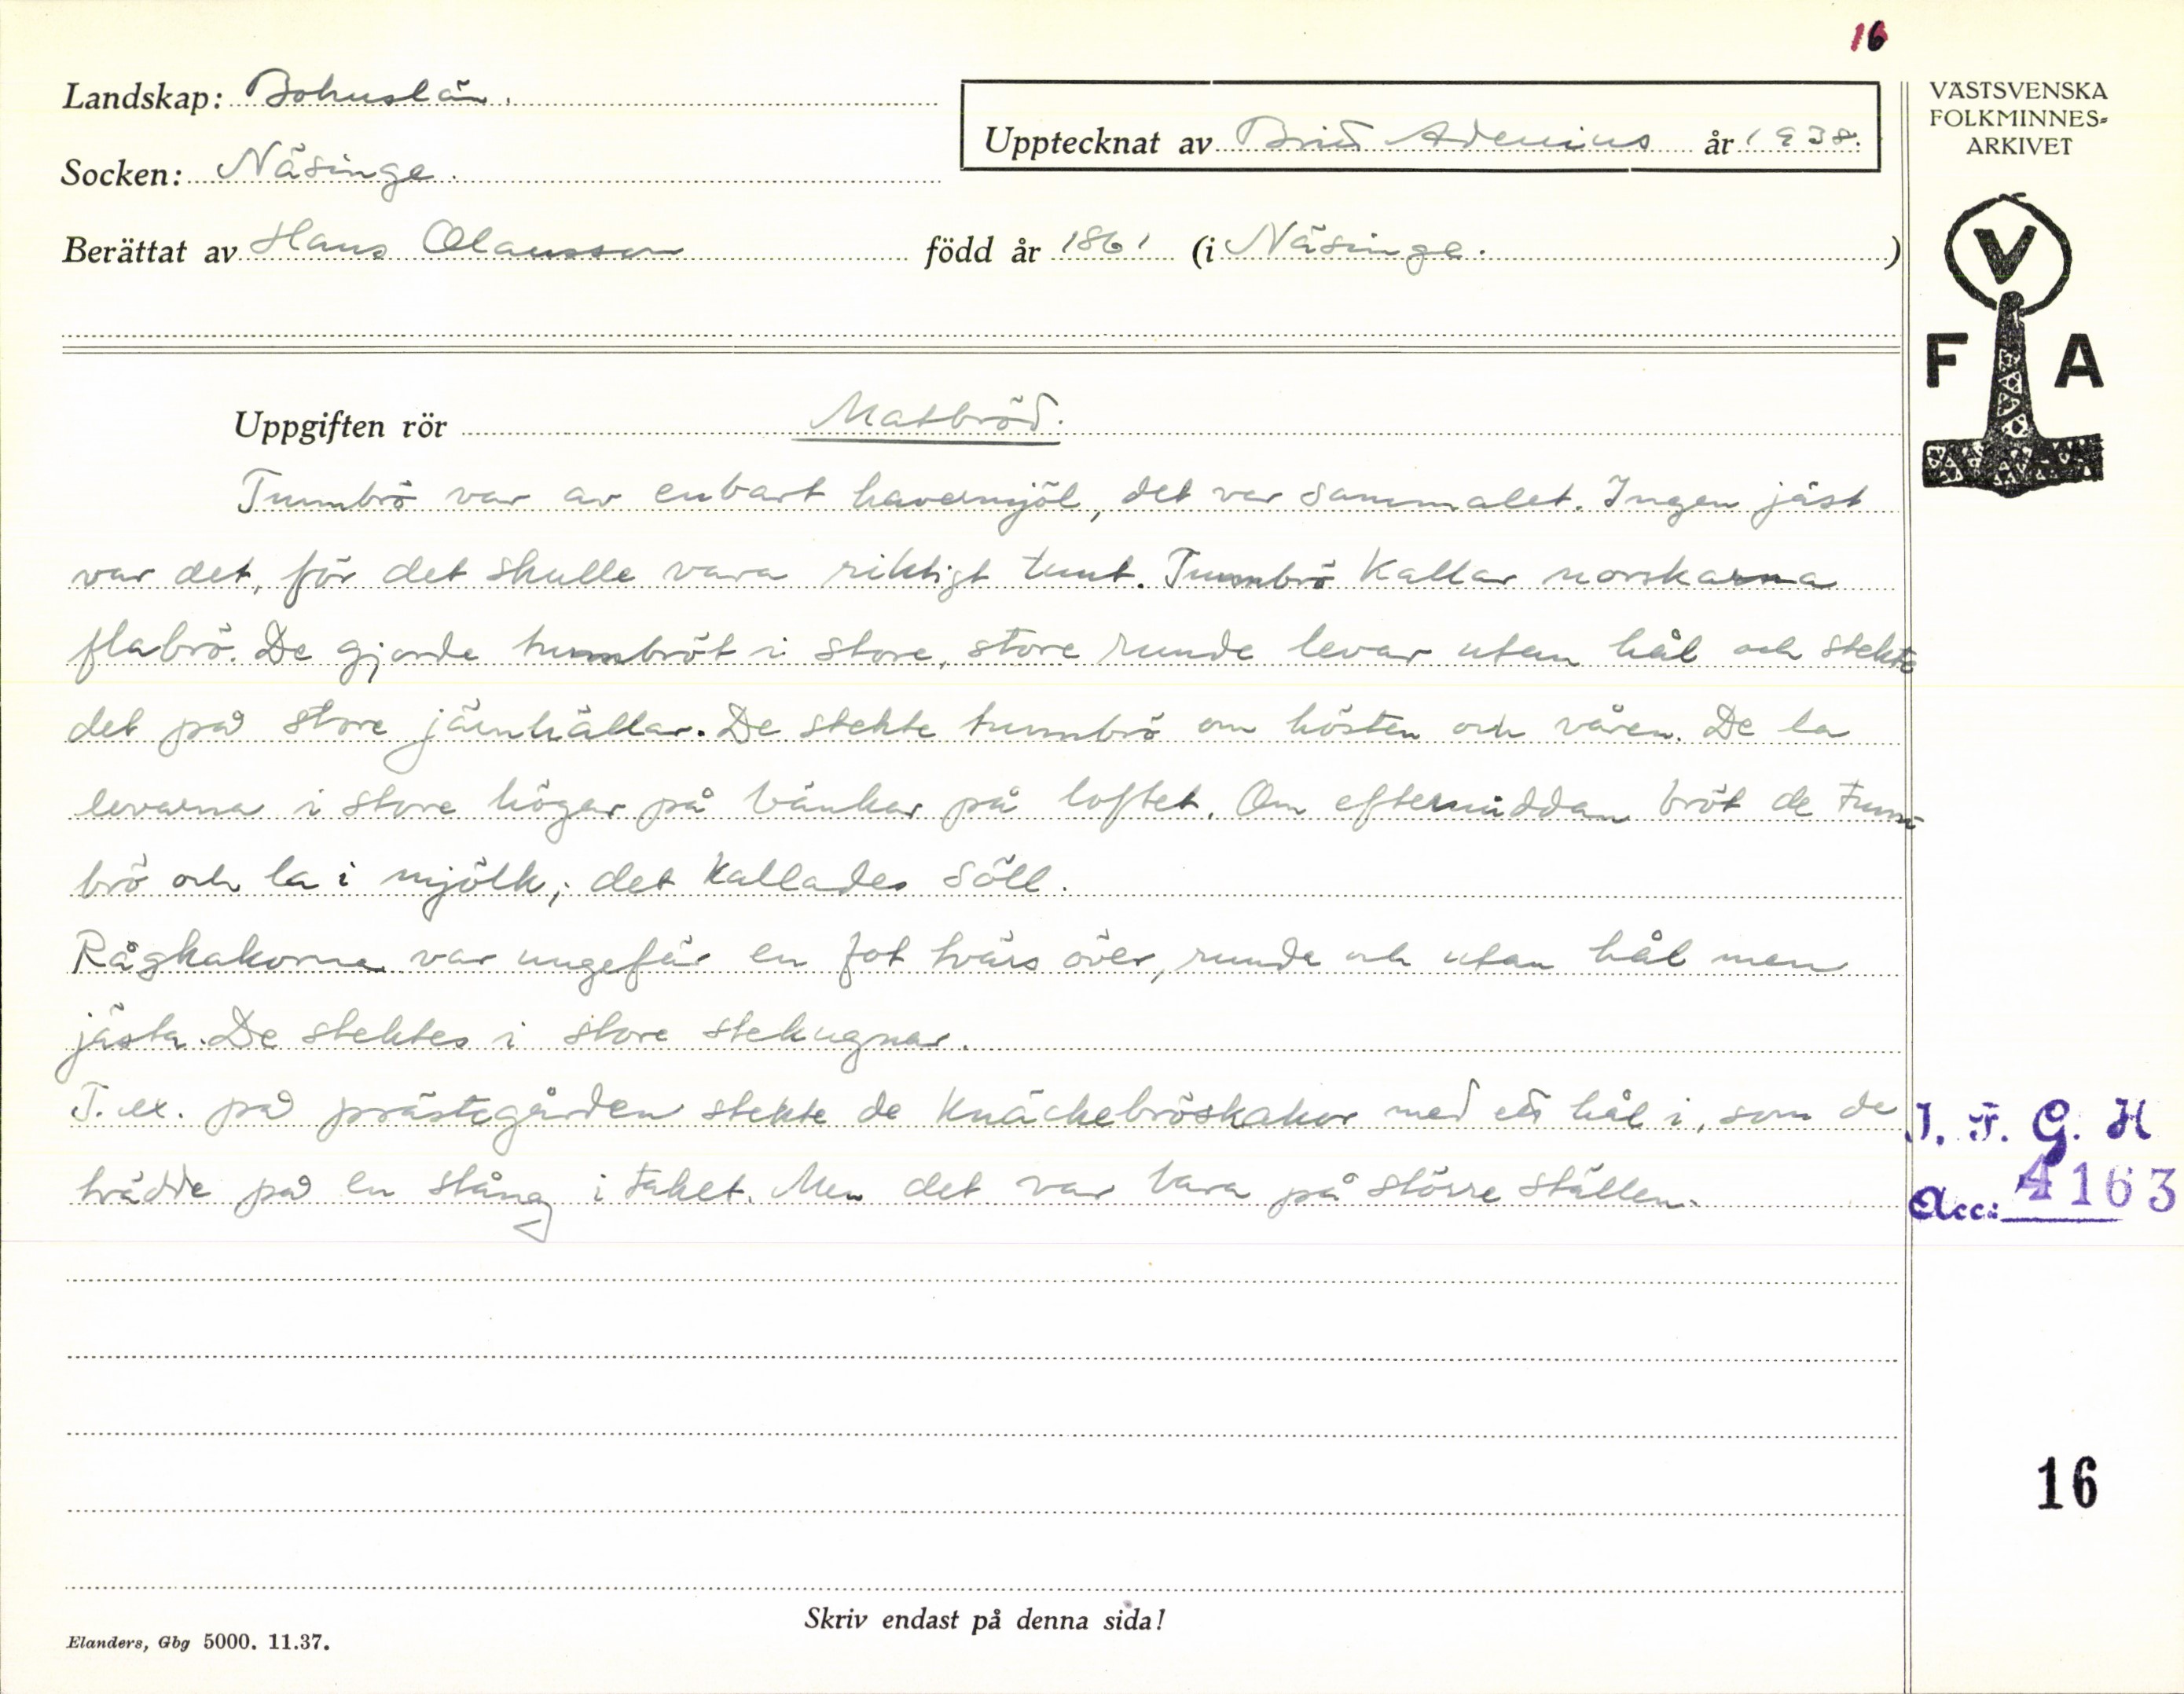 16
Landskap: Bohuslän.
Upptecknat av Brita Adenius år 1938.
Socken: Näsinge.
Berättat av Hans Olausson född år 1861 (i Näsinge.)
VÄSTSVENSKA
FOLKMINNES-
ARKIVET
V
F A
Uppgiften rör Matbröd.
Tunnbrö var av enbart havermjöl, det var sammalet. Ingen jäst
var det, för det skulle vara riktigt tunt. Tunnbrö kallar norskarna
flabrö. De gjorde tunnbröt i store, store runde levar utan hål och stekte
det på store järnhällar. De stekte tunnbrö om hösten och våren. De la
levarna i store högar på bänkar på loftet. Om eftermiddan bröt de tunn-
brö och la i mjölk; det kallades söll.
Rågkakorna var ungefär en fot tvärs över, runde och utan hål men
jästa. De stektes i store stekugnar.
T. ex. på prästegården stekte de knäckebröskakor med ett hål i, som de
trädde på en stång i taket. Men det var bara på större ställen.
I. F. G. H
Acc: 4163
16
Skriv endast på denna sida!
Elanders, Gbg 5000. 11.37.